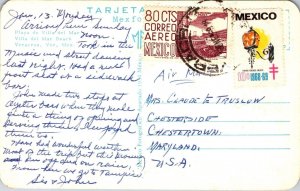 TARJETA
Mexico
Plaza de Villa del Mar
Villa del Mar Beach
Veracruz, Ver. Mex.
Jan. 13, Monday
Arrived here Sunday
noon. Took in the
Museum and street dancing
last night. Had a well
front seat at a sidewalk
bar.
John made two stops at
Oyster bars where they make
quite a thing of opening and
serving them. I enjoyed
them too.
Have had wonderful weather
most of the trip but this morning
From here we go to Tampico
Sis & John
80 CTS
CORREO
AEREO
MEXICO
MEXICO
1968-69
Air Mail
Mrs. Claude E. Truslow
Chesterside
Chestertown,
Maryland.
U.S.A.